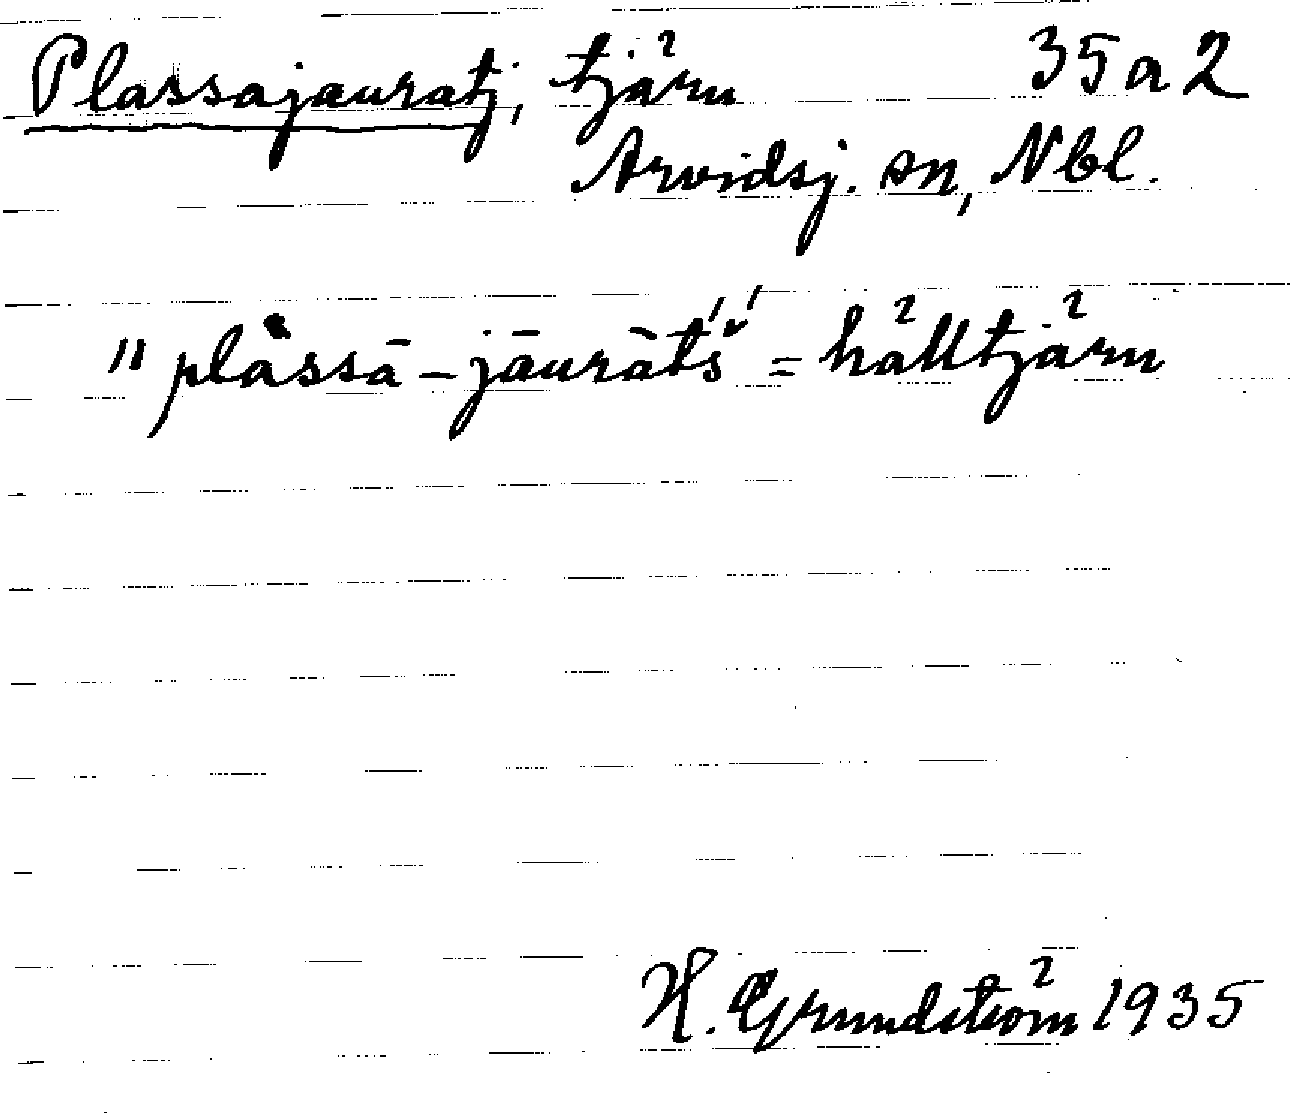 Plassajauratj, tjärn 35 a 2
Arvidsj. sn, Nbl.
"plåssā-jāuràt́š́ = hälltjärn
H. Grundström 1935